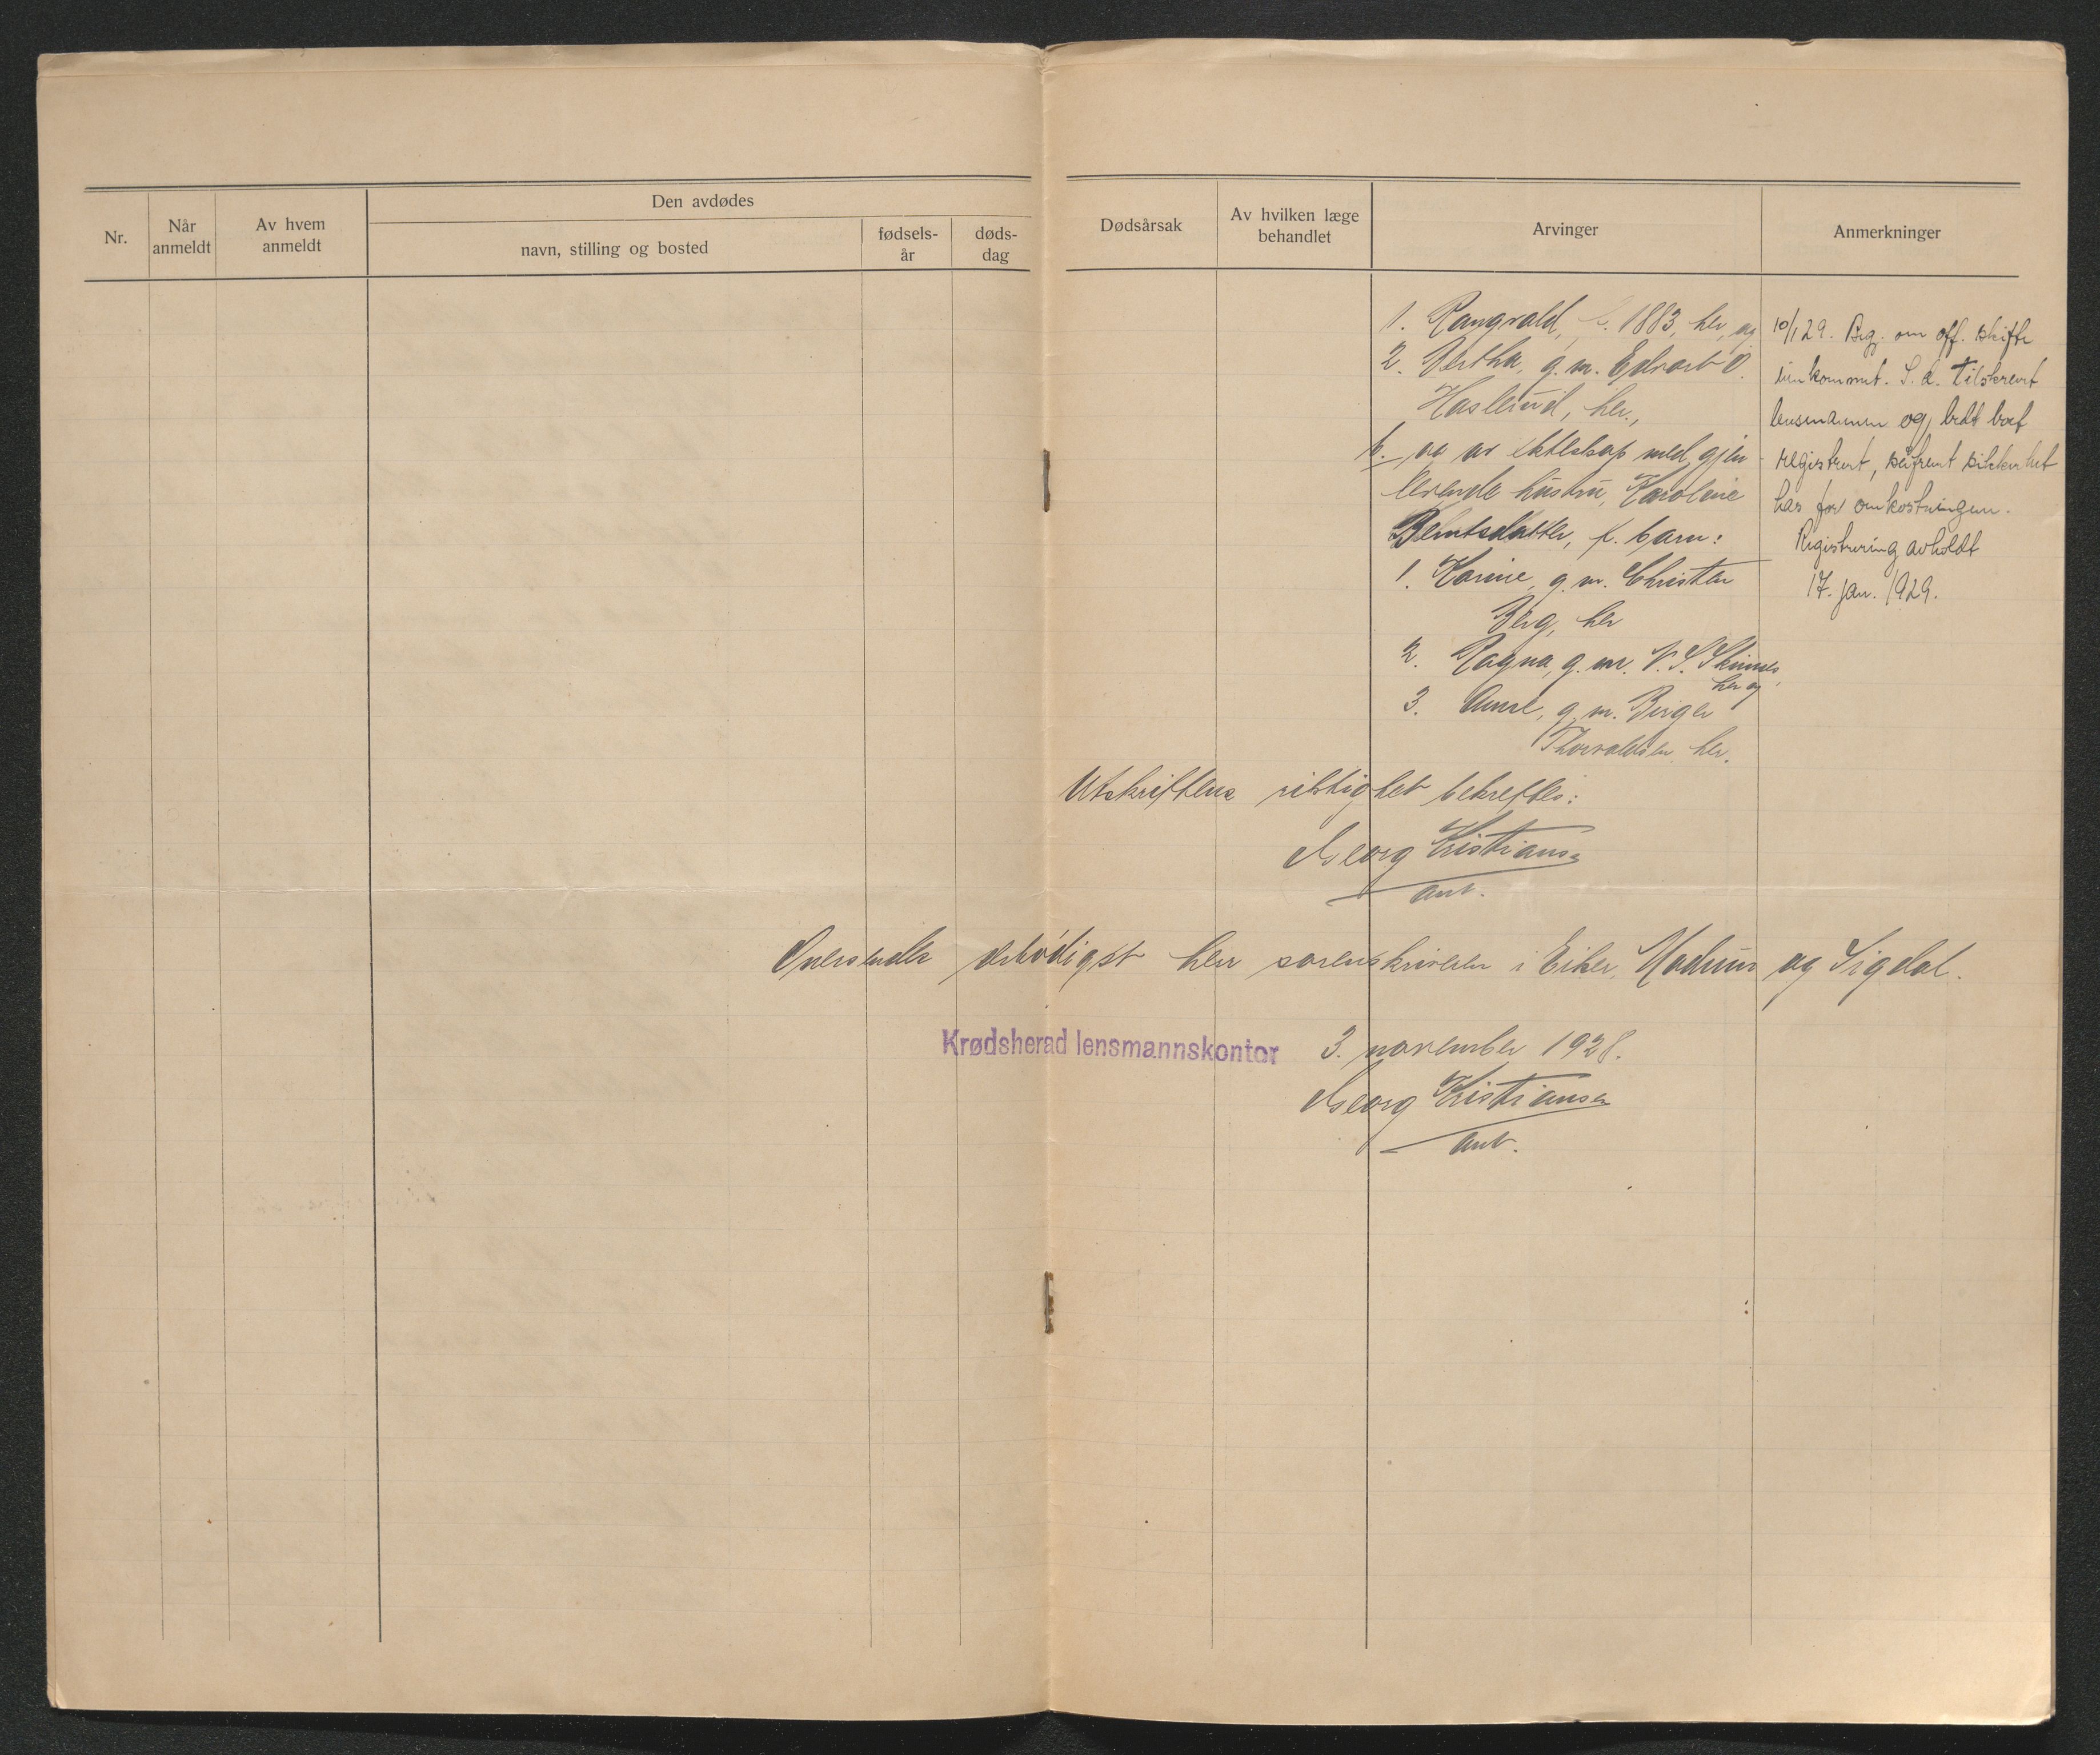 Nr.
Når anmeldt
Av hvem anmeldt
Den avdødes
navn, stilling og bosted
fødsels-år
døds-dag
Dødsårsak
Av hvilken læge behandlet
Arvinger
Anmerkninger
1. Rangvald, f. 1883, her, og
2. Bertha, g. m. Edvart O.
Hasleiud, her.,
b. av ekteskap med gjen-
levende hustru, Karoline
Berntsdatter, f. barn:
1. Karine, g. m. Christen
Berg, her
2. Ragna, g. m. N. S. Skinnes,
her og
3. Anne, g. m. Birger
Thorvaldsen her.
10/1 29. Beg. om off. skifte
innkommet. S. d. tilskrevet
lensmannen og bedt boet
registrert, såfremt sikkerhet
has for omkostningene.
Registrering avholdt
17. jan. 1929.
Utskriftens riktighet bekreftes:
Georg Kristiansen
ant.
Oversendes ærbödigst herr sorenskriveren i Eiker, Modum og Sigdal.
Krødsherad lensmannskontor 3. november 1928.
Georg Kristiansen
ant.